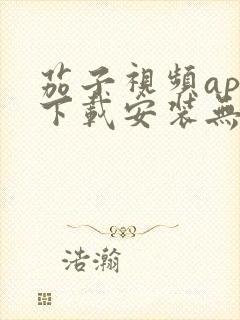 茄子視頻ap
下載安裝無
浩瀚